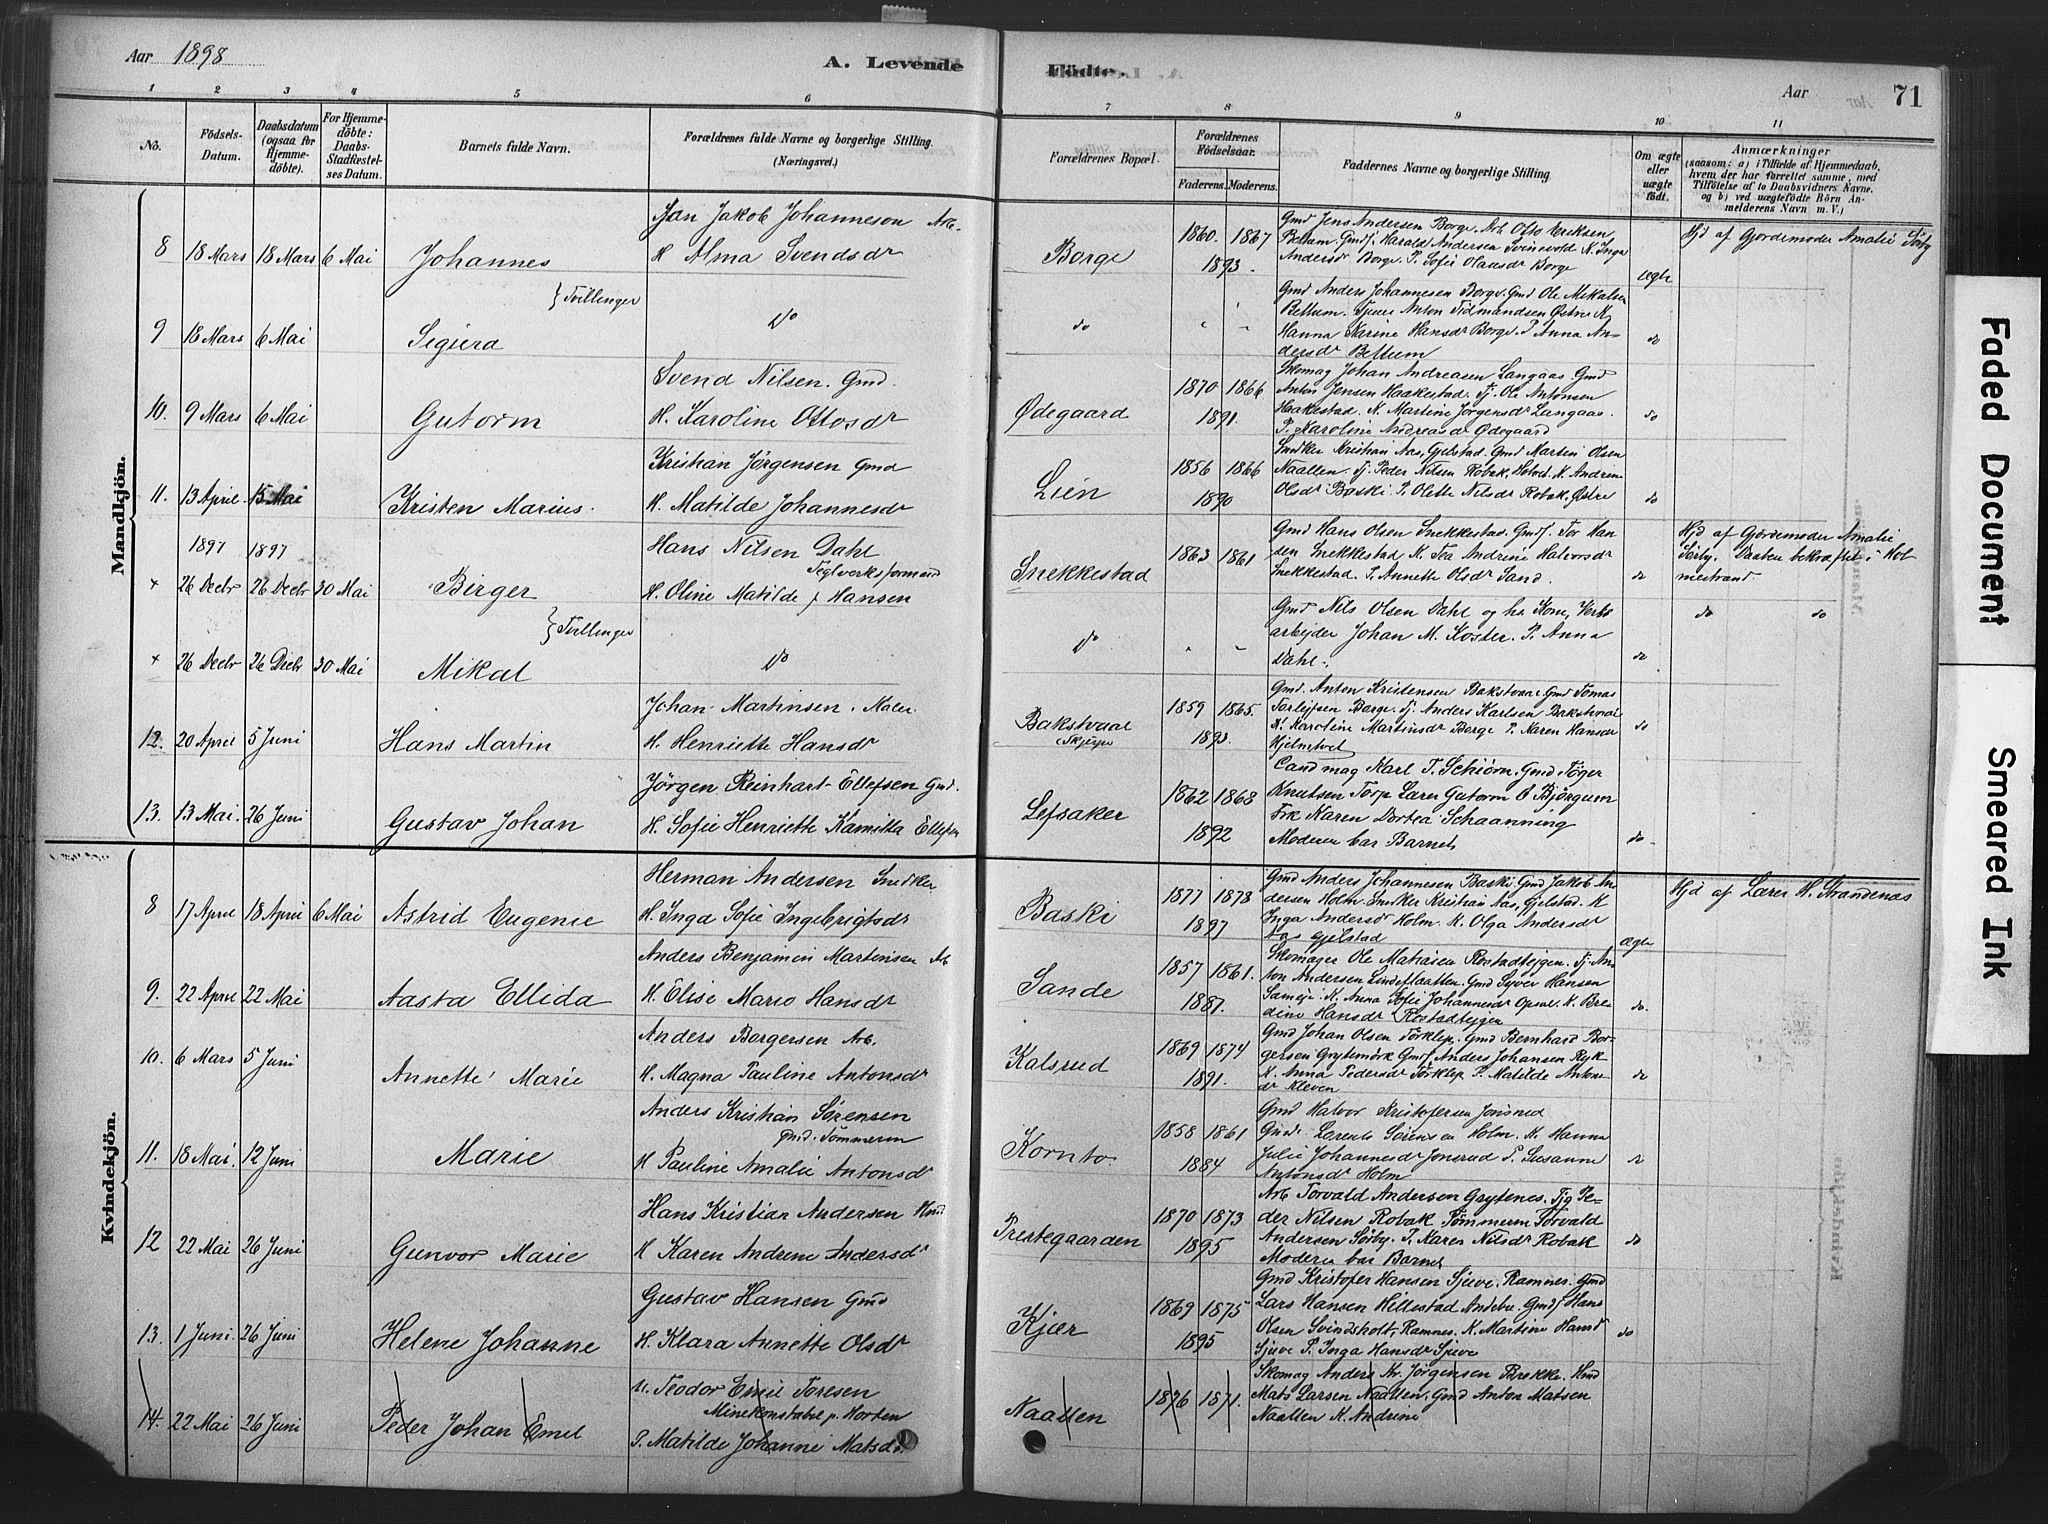 Aar 1898
A. Levende Födte.
Aar
71
1 2 3 4 5 6 7 8 9 10 11
No.
Födsels-Datum.
Daabsdatum (ogsaa for Hjemme-döbte).
For Hjemme-döbte: Daabs-Stadfæstel-ses Datum.
Barnets fulde Navn.
Forældrenes fulde Navne og borgerlige Stilling. (Næringsvei.)
Forældrenes Bopæl.
Forældrenes Födselsaar.
Faderens. Moderens.
Faddernes Navne og borgerlige Stilling
Om ægte eller uægte födt.
Anmærkninger
(saasom: a) i Tilfælde af Hjemmedaab, hvem der har forrettet samme, med Tilföielse af to Daabsvidners Navne, og b) ved uægtefödte Börn An-melderens Navn m. V.)
Mandkjön.
Jan Jakob Johanneson Arb.
8 18 Mars 18 Mars 6 Mai Johannes
H Alma Svendsdr
Borge 1860. 1867
1893.
Gmd Jens Andersen Borge. Arb Otto Eriksen
Bettum. Gmdsj. Harald Andersen Svinevold K. Inga
Andersdr Borge. P. Sofie Olausdr Borge
ægte
Hjd af Gjordemoder Amalie Sörby
} Tvillinger
9 18 Mars 6 Mai Sigurd
do
do " "
Gmd Anders Johannesen Borge. Gmd Ole Mikalsen
Bettum. Tjener Anton Tidmandsen Østre K
Hanna Karine Hansdr Borge. P. Anna An-
dersdr Bettum
do
Svend Nilsen. Gmd.
10. 9 Mars 6 Mai Gutorm
H. Karoline Ottosdr
Ødegaard 1870 1866
1891.
Skomag Johan Andreasen Langaas Gmd
Anton Jensen Haakestad. Tj. Ole Antonsen
Haakestad. K. Martine Jörgensdr Langaas.
P. Karoline Andreasdr Ødegaard
do
Kristian Jörgensen Gmd
11. 13 April 15 Mai Kristen Marius.
H. Matilde Johannesdr
Lien 1856 1866
1890
Snedker Kristian Aas, Gjelstad. Gmd Martin Olsen
Naallen. Tj. Peder Nilsen Robak, Hotvet. K. Andrine
Olsdr Baski P. Olette Nilsdr Robak, Østre
do
1897 1897
Hans Nilsen Dahl
Teglverksformand
× 26 Decbr 26 Decbr 30 Mai Birger
H. Oline Matilde f. Hansen
Snekkestad 1863 1861
Gmd Hans Olsen Snekkestad. Gmdsj. Tor Han-
sen Snekkestad K. Tea Andrine Halvorsdr
Snekkestad. P. Annette Olsdr Sand.
do
Hjd af Gjordemoder Amalie
Sörby. Daaben bekræftet i Hol
mestrand
} Tvillinger
× 26 Decbr 26 Decbr 30 Mai Mikal
do
do " "
Gmd Nils Olsen Dahl og hs Kone, Verks
arbejder Johan M. Koster. P. Anna
Dahl.
do
do do
Johan Martinsen. Maler
12. 20 April 5 Juni Hans Martin
H. Henriette Hansdr
Bakstvaal 1859 1865.
1893.
Gmd. Anton Kristensen Bakstvaal Gmd Tomas
Torlejfsen Borge. Tj. Anders Karlsen Bakstvaal
K. Karoline Martinsdr Borge P. Karen Hansdr
Hjelmtvet
do
Jörgen Reinhart Ellefsen Gmd.
13. 13 Mai. 26 Juni Gustav Johan
H. Sofie Henriette Kamilla Ellefsen
Lefsaker 1862 1868
1892
Cand mag Karl T. Schiörn. Gmd Töger
Knutsen Torp Lærer Gutorm O Björgum
Frk Karen Dortea Schaanning
Moderen bar Barnet
do.
Kvindekjön.
Herman Andersen Snedker
8 17 April 18 April 6 Mai Astrid Eugenie
H. Inga Sofie Ingebrigtsdr
Baski 1877 1878
1897
Gmd Anders Johannesen Baski. Gmd Jakob An-
dersen Holm. Snedker Kristian Aas, Gjelstad. K
Inga Andersdr Holm. K. Olga Andersdr
Aas Gjelstad
ægte
Hjd af Lærer H. Strandenæs
Anders Benjamin Martinsen Arb
9. 22 April 22 Mai Aasta Ellida
H. Elise Marie Hansdr
Sande 1857 1861.
1887.
Skomager Ole Matiasen Rostadtejgen. Tj. An-
ton Andersen Lindeflaatten. Gmd Syver Hansen
Sameje. K. Anna Sofie Johannesdr Opsal. K. Bre-
dine Hansdr Rostadtejgen
do.
Anders Borgersen Arb.
10. 6 Mars 5 Juni Annette Marie
H. Magna Pauline Antonsdr
Kalsrud 1869 1874
1891.
Gmd Johan Olsen Törklep. Gmd Bernhard Bor-
gersen Grytemörk Gmdsj. Anders Johansen Ryk-
K. Anna Pedersdr Törklep P. Matilde Antons
dr Kleven
do
Anders Kristian Sørensen
Gmd. Tömmerm
11. 18 Mai. 12 Juni Marie
H Pauline Amalie Antonsdr
Kornto 1858 1861
1884
Gmd Halvor Kristofersen Jonsrud
Gmd. Lorents Sörensen Holm. K. Hanna
Julie Johannesdr Jonsrud P. Susanne
Antonsdr Holm
do
Hans Kristian Andersen Hmd
12 22 Mai 26 Juni Gunvor Marie
H Karen Andrine Andersdr
Prestegaarden 1870 1873
1895
Arb Torvald Andersen Grytenes. Tjg Pe-
der Nilsen Robak Tömmerm Torvald
Andersen Sörby. P. Karen Nilsdr Robak
Moderen bar Barnet
do
Gustav Hansen Gmd
13. 1 Juni. 26 Juni Helene Johanne
H. Klara Annette Olsdr
Kjær 1869 1875
1895
Gmd Kristofer Hansen Sjuve. Ramnes. Gmd
Lars Hansen Hillestad Andebu. Gmdsj. Hans
Olsen Svindsholt, Ramnes. K. Martine Hansdr
Sjuve P. Inga Hansdr Sjuve
do
U. Teodor Emil Toresen
Minekonstabel p. Horten
14. 22 Mai 26 Juni Peder Johan Emel
P. Matilde Johanne Matsdr
Naallen 1876 1871.
Skomag Anders Kr. Jörgensen Brekke. Hmd
Mats Larsen Naallen, Gmd Anton Matsen
Naallen K. Andrine
Faded Document
Smeared Ink